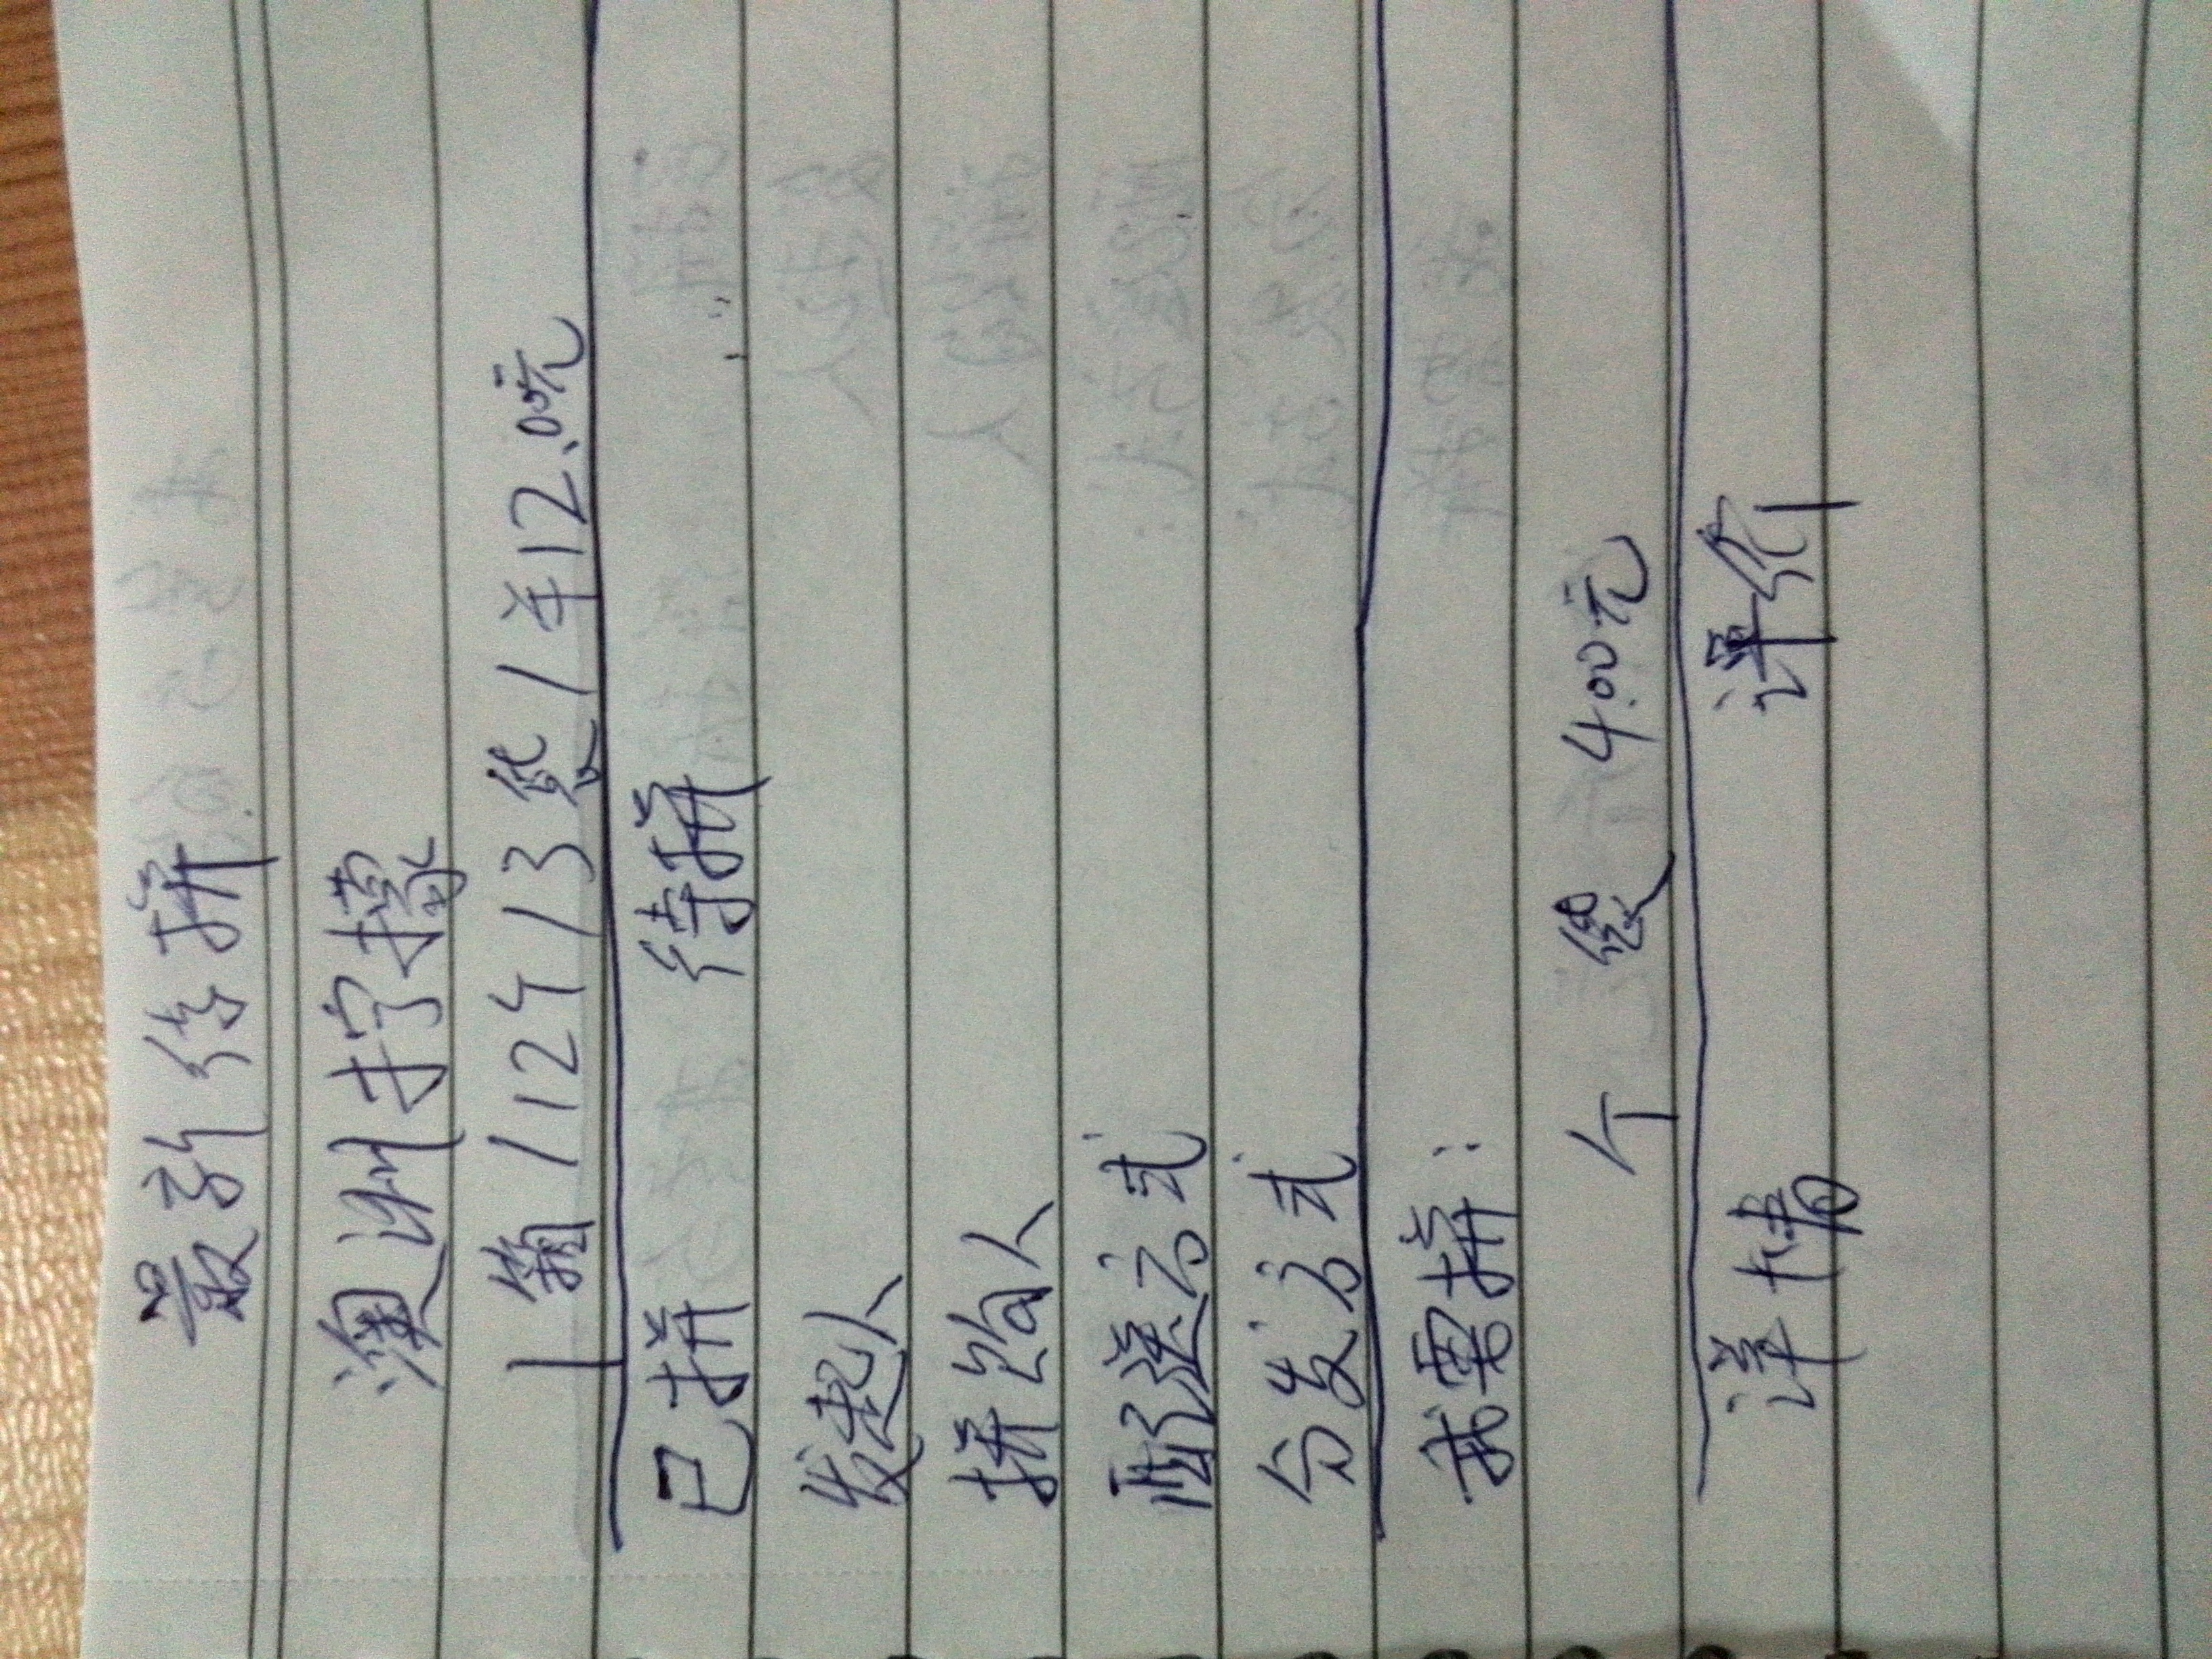 最新待拼
澳洲柠檬
1箱/12个/3袋/年12.00元
已拼 待拼
发起人
拼购人
配送方式
分发方式
我要拼:
个 袋 4.00元
详情 评价